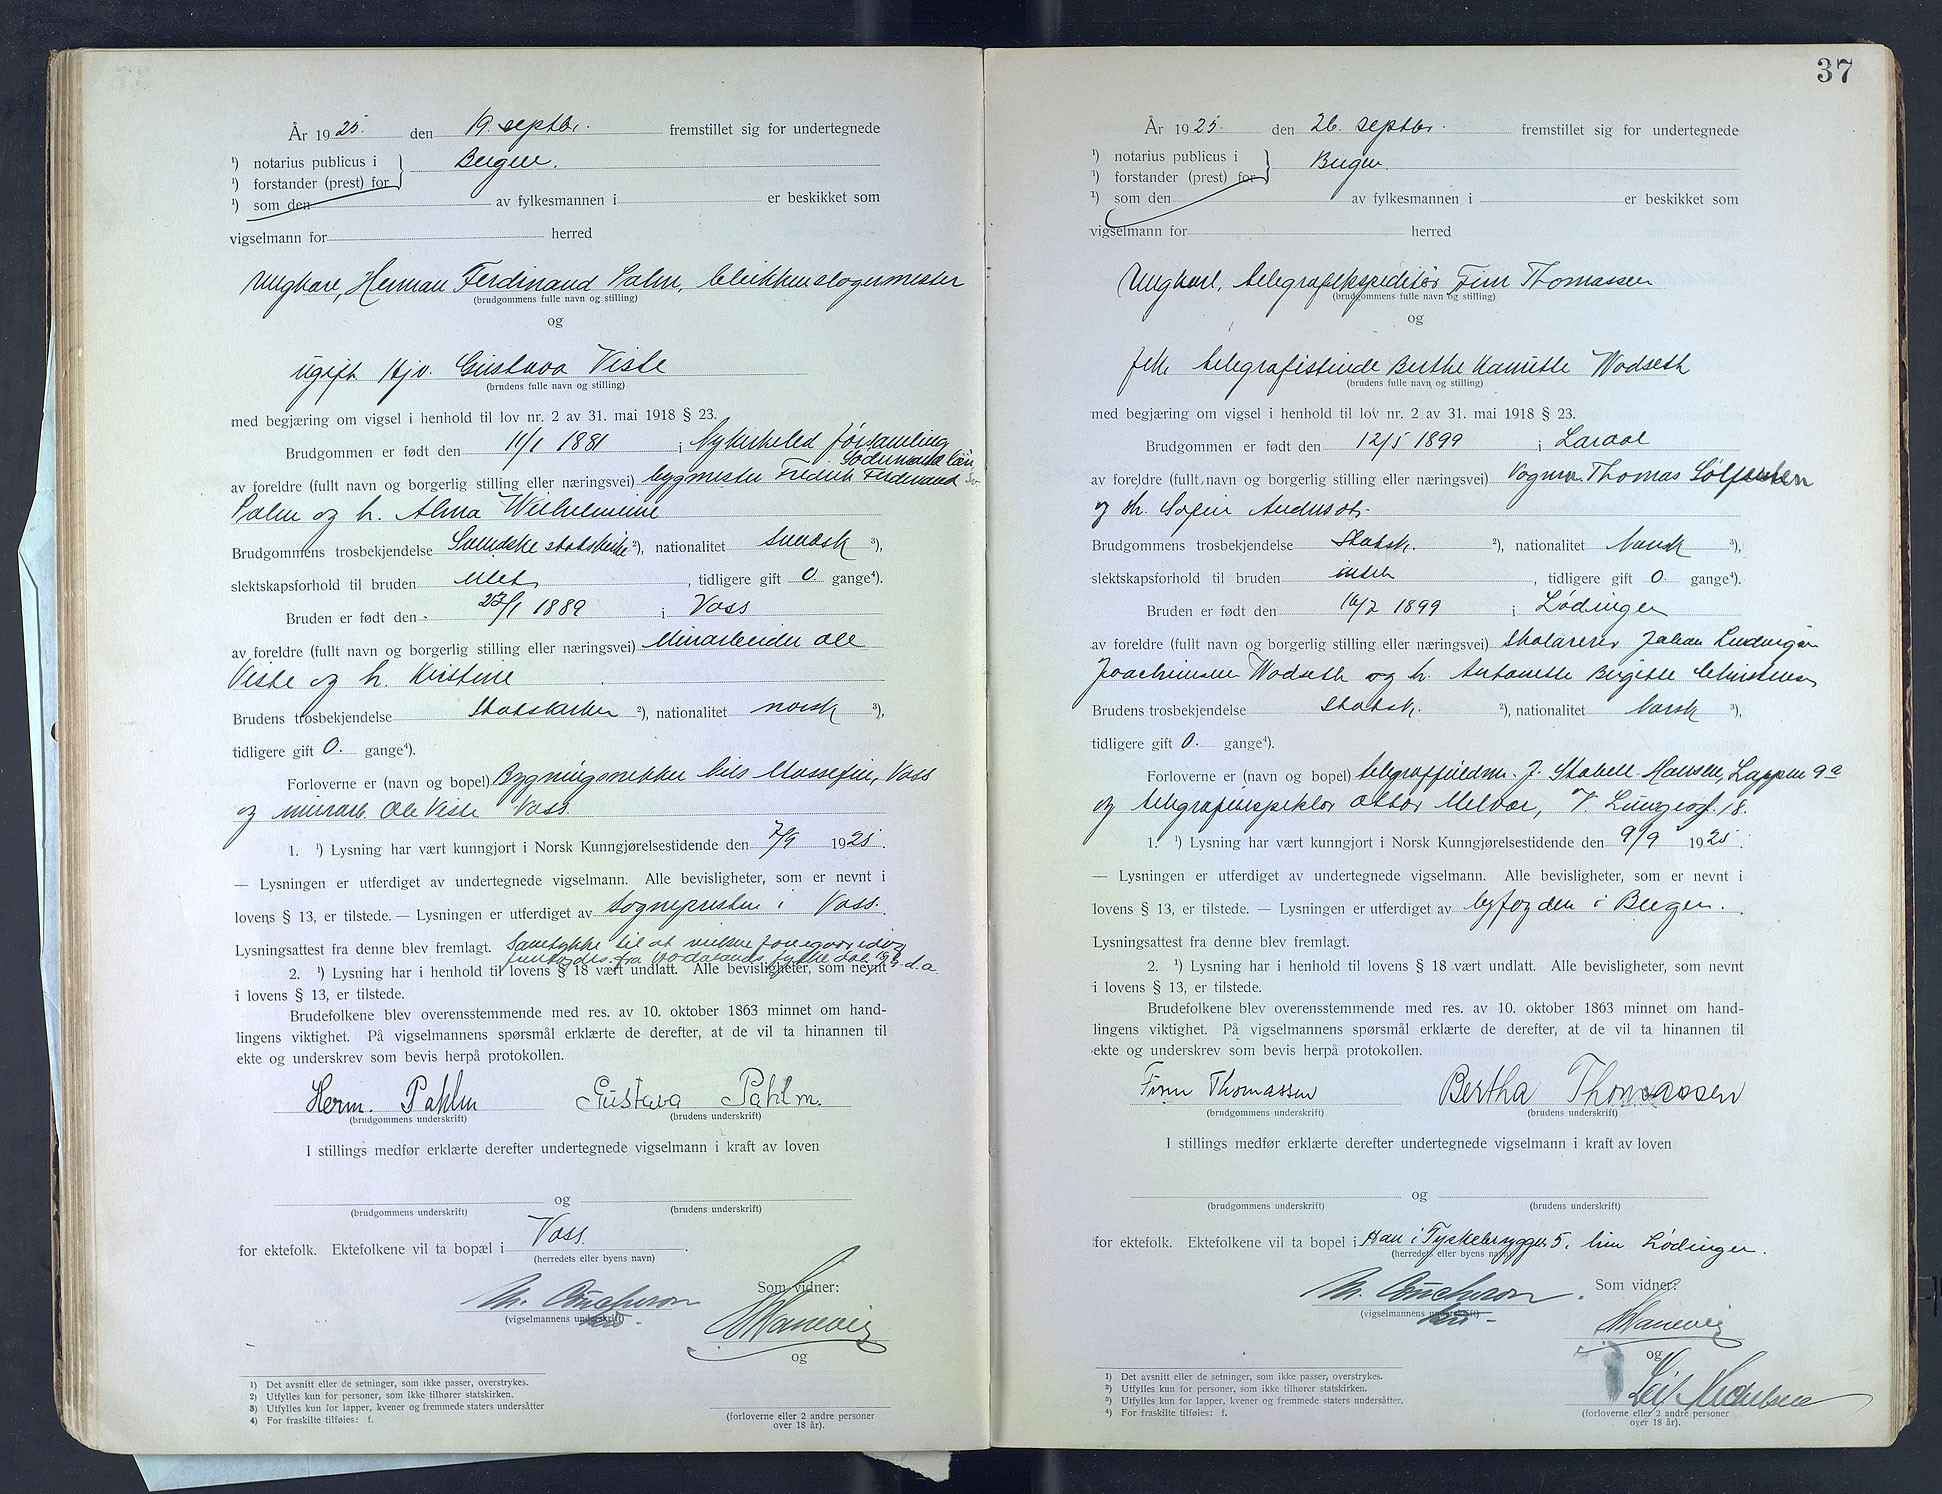 År 1925. den 19. septbr. fremstillet sig for undertegnede
¹) notarius publicus i } Bergen.
¹) forstander (prest) for
¹) som den av fylkesmannen i er beskikket som
vigselmann for herred
Ungkarl, Herman Ferdinand Palm, blikkenslagermester
(brudgommens fulle navn og stilling)
og
ugift Gustava Viste
(brudens fulle navn og stilling)
med begjæring om vigsel i henhold til lov nr. 2 av 31. mai 1918 § 23.
Brudgommen er født den 11/1 1881 i Nykirkeled forsamling
av foreldre (fullt navn og borgerlig stilling eller næringsvei) bygmester Fredrik Ferdinand
Palm og h. Alma Wilhelmine
Brudgommens trosbekjendelse Svenske statskirke ²), nationalitet svensk ³),
slektskapsforhold til bruden intet, tidligere gift 0 gange⁴).
Bruden er født den 27/1 1889 i Voss
av foreldre (fullt navn og borgerlig stilling eller næringsvei) Murarbeider Ole
Viste og h. Kristine
Brudens trosbekjendelse Statskirken ²), nationalitet norsk ³),
tidligere gift 0. gange⁴).
Forloverne er (navn og bopel) Bygningsnikker Nils Voss
og murarb. Ole Viste Voss.
1. ¹) Lysning har vært kunngjort i Norsk Kunngjørelsestidende den 7/9 1925.
— Lysningen er utferdiget av undertegnede vigselmann. Alle bevisligheter, som er nevnt i
lovens § 13, er tilstede. — Lysningen er utferdiget av Sognepresten i Voss.
Lysningsattest fra denne blev fremlagt. Samtykke til at vielse foregaar
fra Hordalands fylke d.a.
2. ¹) Lysning har i henhold til lovens § 18 vært undlatt. Alle bevisligheter, som nevnt
i lovens § 13, er tilstede.
Brudefolkene blev overensstemmende med res. av 10. oktober 1863 minnet om hand-
lingens viktighet. På vigselmannens spørsmål erklærte de derefter, at de vil ta hinannen til
ekte og underskrev som bevis herpå protokollen.
Herm. Pahlm Gustava Pahlm.
(brudgommens underskrift) (brudens underskrift)
I stillings medfør erklærte derefter undertegnede vigselmann i kraft av loven
og
(brudgommens underskrift) (brudens underskrift)
for ektefolk. Ektefolkene vil ta bopæl i Voss.
(herredets eller byens navn)
Som vidner:
(vigselmannens underskrift)
og
(forloverne eller 2 andre personer
over 18 år).
1) Det avsnitt eller de setninger, som ikke passer, overstrykes.
2) Utfylles kun for personer, som ikke tilhører statskirken.
3) Utfylles kun for lapper, kvener og fremmede staters undersåtter
4) For fraskilte tilføies: f.
37
År 1925. den 26. septbr. fremstillet sig for undertegnede
¹) notarius publicus i } Bergen.
¹) forstander (prest) for
¹) som den av fylkesmannen i er beskikket som
vigselmann for herred
Ungkarl, telegrafekspeditør Finn Thomassen
(brudgommens fulle navn og stilling)
og
frk. telegrafistinde Berthe Kamitle Wodseth
(brudens fulle navn og stilling)
med begjæring om vigsel i henhold til lov nr. 2 av 31. mai 1918 § 23.
Brudgommen er født den 12/5 1899 i
av foreldre (fullt navn og borgerlig stilling eller næringsvei) Thomas
og h. Sofie
Brudgommens trosbekjendelse Statsk. ²), nationalitet norsk ³),
slektskapsforhold til bruden intet, tidligere gift 0. gange⁴).
Bruden er født den 16/7 1899 i Lødingen
av foreldre (fullt navn og borgerlig stilling eller næringsvei) Johan Ludvigsen
Joachimsen Wodseth og h. Antonette Birgitte Christensen
Brudens trosbekjendelse Statsk. ²), nationalitet norsk ³),
tidligere gift 0. gange⁴).
Forloverne er (navn og bopel) J. Stabell Hansen, Lappen 9a
og telegrafinspektør Ottar Melvær, V. 18.
1. ¹) Lysning har vært kunngjort i Norsk Kunngjørelsestidende den 9/9 1925.
— Lysningen er utferdiget av undertegnede vigselmann. Alle bevisligheter, som er nevnt i
lovens § 13, er tilstede. — Lysningen er utferdiget av byfogden i Bergen.
Lysningsattest fra denne blev fremlagt.
2. ¹) Lysning har i henhold til lovens § 18 vært undlatt. Alle bevisligheter, som nevnt
i lovens § 13, er tilstede.
Brudefolkene blev overensstemmende med res. av 10. oktober 1863 minnet om hand-
lingens viktighet. På vigselmannens spørsmål erklærte de derefter, at de vil ta hinannen til
ekte og underskrev som bevis herpå protokollen.
Finn Thomassen Bertha Thomassen
(brudgommens underskrift) (brudens underskrift)
I stillings medfør erklærte derefter undertegnede vigselmann i kraft av loven
og
(brudgommens underskrift) (brudens underskrift)
for ektefolk. Ektefolkene vil ta bopel i Han i Tyskebryggen 5, hun Lødingen.
(herredets eller byens navn)
Som vidner:
(vigselmannens underskrift)
og
(forloverne eller 2 andre personer
over 18 år).
¹) Det avsnitt eller de setninger, som ikke passer, overstrykes.
²) Utfylles kun for personer, som ikke tilhører statskirken.
³) Utfylles kun for lapper, kvener og fremmede staters undersåtter.
⁴) For fraskilte tilføies: f.